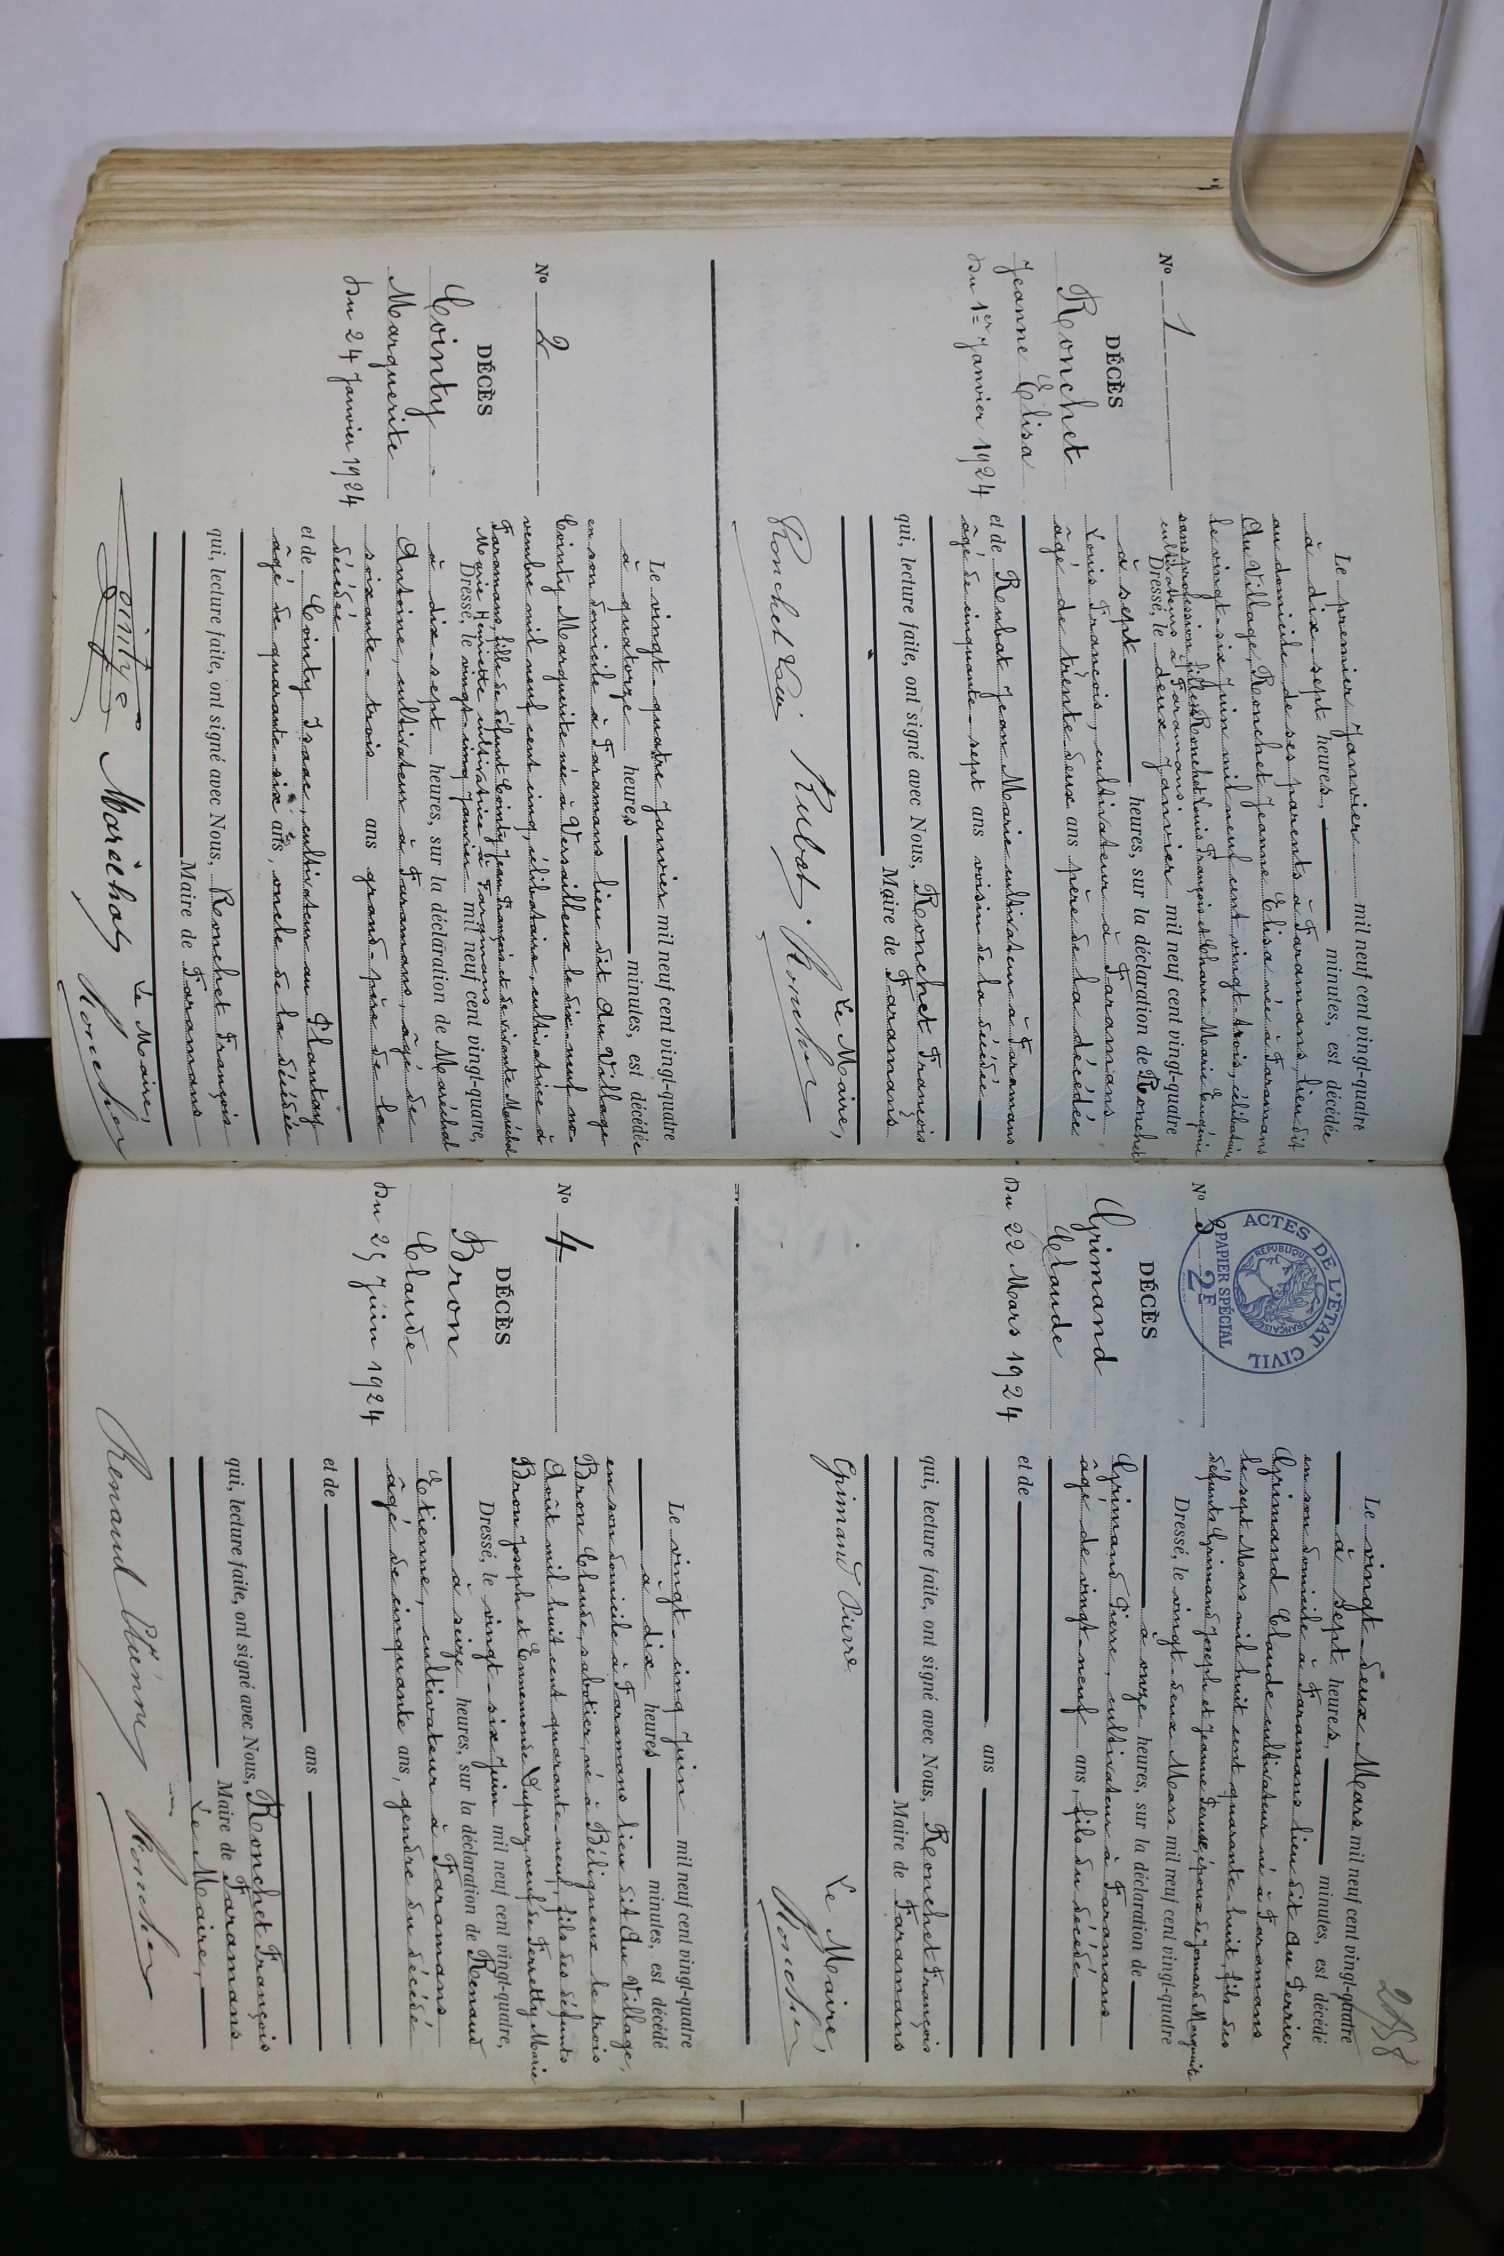 N° 1
DÉCÈS
Ronchet
Jeanne Elisa
Du 1er Janvier 1924
Le premier Janvier mil neuf cent vingt-quatre
à dix-sept heures, minutes, est décédée
au domicile de ses parents à Faramans, lieu dit
Au Village, Ronchet Jeanne Elisa née à Faramans
le vingt-six Juin mil neuf cent vingt-trois, célibataire
sans profession, fille de Ronchet Louis François et Charre Marie Eugénie
cultivateurs à Faramans.
Dressé, le deux Janvier mil neuf cent vingt-quatre
à sept heures, sur la déclaration de Ronchet
Louis François, cultivateur à Faramans
âgé de trente deux ans père de la décédée
et de Renbat Jean Marie cultivateur à Faramans
âgé de cinquante-sept ans voisin de la décédée
qui, lecture faite, ont signé avec Nous, Ronchet François
Maire de Faramans
Le Maire,
Ronchet Louis Rubat Ronchet
N° 2
DÉCÈS
Cointy
Marguerite
Du 24 Janvier 1924
Le vingt-quatre Janvier mil neuf cent vingt-quatre
à quatorze heures minutes, est décédée
en son domicile à Faramans lieu dit Au Village
Cointy Marguerite née à Versailleux le dix-neuf no-
vembre mil neuf cent cinq, célibataire, cultivatrice à
Faramans, fille de défunt Cointy Jean François et de vivante Maréchal
Marie Henriette cultivatrice à Faramans
Dressé, le vingt-cinq Janvier mil neuf cent vingt-quatre,
à dix-sept heures, sur la déclaration de Maréchal
Antoine, cultivateur à Faramans, âgé de
soixante-trois ans grand-père de la
décédée
et de Cointy Isaac, cultivateur au Plantay
âgé de quarante-six ans, oncle de la décédée
qui, lecture faite, ont signé avec Nous, Ronchet François
Maire de Faramans
Le Maire,
Cointy Maréchal Ronchet
258
ACTES DE L'ÉTAT CIVIL
RÉPUBLIQUE FRANÇAISE
PAPIER SPÉCIAL
2F
N° 3
DÉCÈS
Grimand
Claude
Du 22 Mars 1924
Le vingt-deux Mars mil neuf cent vingt-quatre
à sept heures, minutes, est décédé
en son domicile à Faramans lieu dit Au Perrier
Grimand Claude cultivateur né à Faramans
le sept Mars mil huit cent quarante-huit, fils des
défunts Grimand Joseph et Jeanne Perrux, époux de Jomard Marguerite
Dressé, le vingt-deux Mars mil neuf cent vingt-quatre
à onze heures, sur la déclaration de
Grimand Pierre, cultivateur à Faramans
âgé de vingt-neuf ans, fils du décédé
et de
ans
qui, lecture faite, ont signé avec Nous, Ronchet François
Maire de Faramans
Le Maire,
Grimand Pierre Ronchet
N° 4
DÉCÈS
Bron
Claude
Du 25 Juin 1924
Le vingt-cinq Juin mil neuf cent vingt-quatre
à dix heures minutes, est décédé
en son domicile à Faramans lieu dit Au Village,
Bron Claude, sabotier, né à Béligneux le trois
Août mil huit cent quarante-neuf, fils des défunts
Bron Joseph et Ennemonde Dupraz, veuf de Ferretty Marie
Dressé, le vingt-six Juin mil neuf cent vingt-quatre,
à seize heures, sur la déclaration de Renaud
Etienne, cultivateur à Faramans
âgé de cinquante ans, gendre du décédé
et de
ans
qui, lecture faite, ont signé avec Nous, Ronchet François
Maire de Faramans
Le Maire,
Renaud Etienne Ronchet